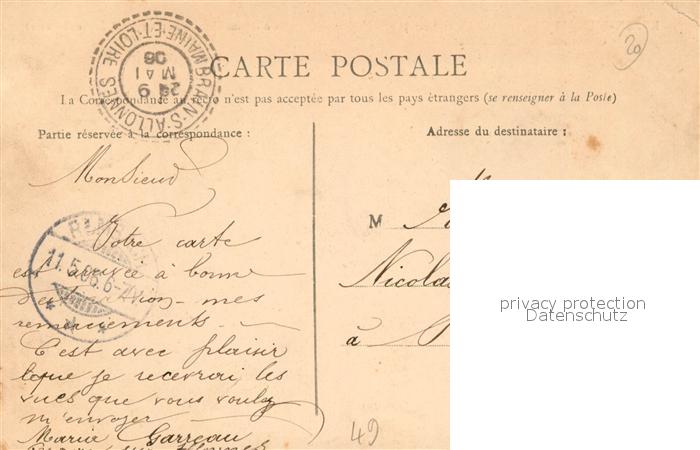 BRAIN-S-ALLONNES
MAINE-ET-LOIRE
9
MAI
06
20
CARTE POSTALE
La Correspondance au recto n'est pas acceptée par tous les pays étrangers (se renseigner à la Poste)
Partie réservée à la correspondance :
Adresse du destinataire :
Monsieur
M
Votre carte
11.5.06.6-7
est arrivée à bonne
Nicolas
destination - mes
remerciements.
à
C'est avec plaisir
que je recevrai les
vues que vous voulez
m'envoyer
Marie Garreau
49
privacy protection
Datenschutz